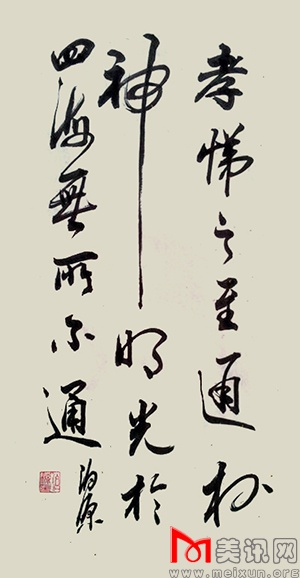 孝悌之至通於
神明光於
四海無所不通
美讯网
www.meixun.org